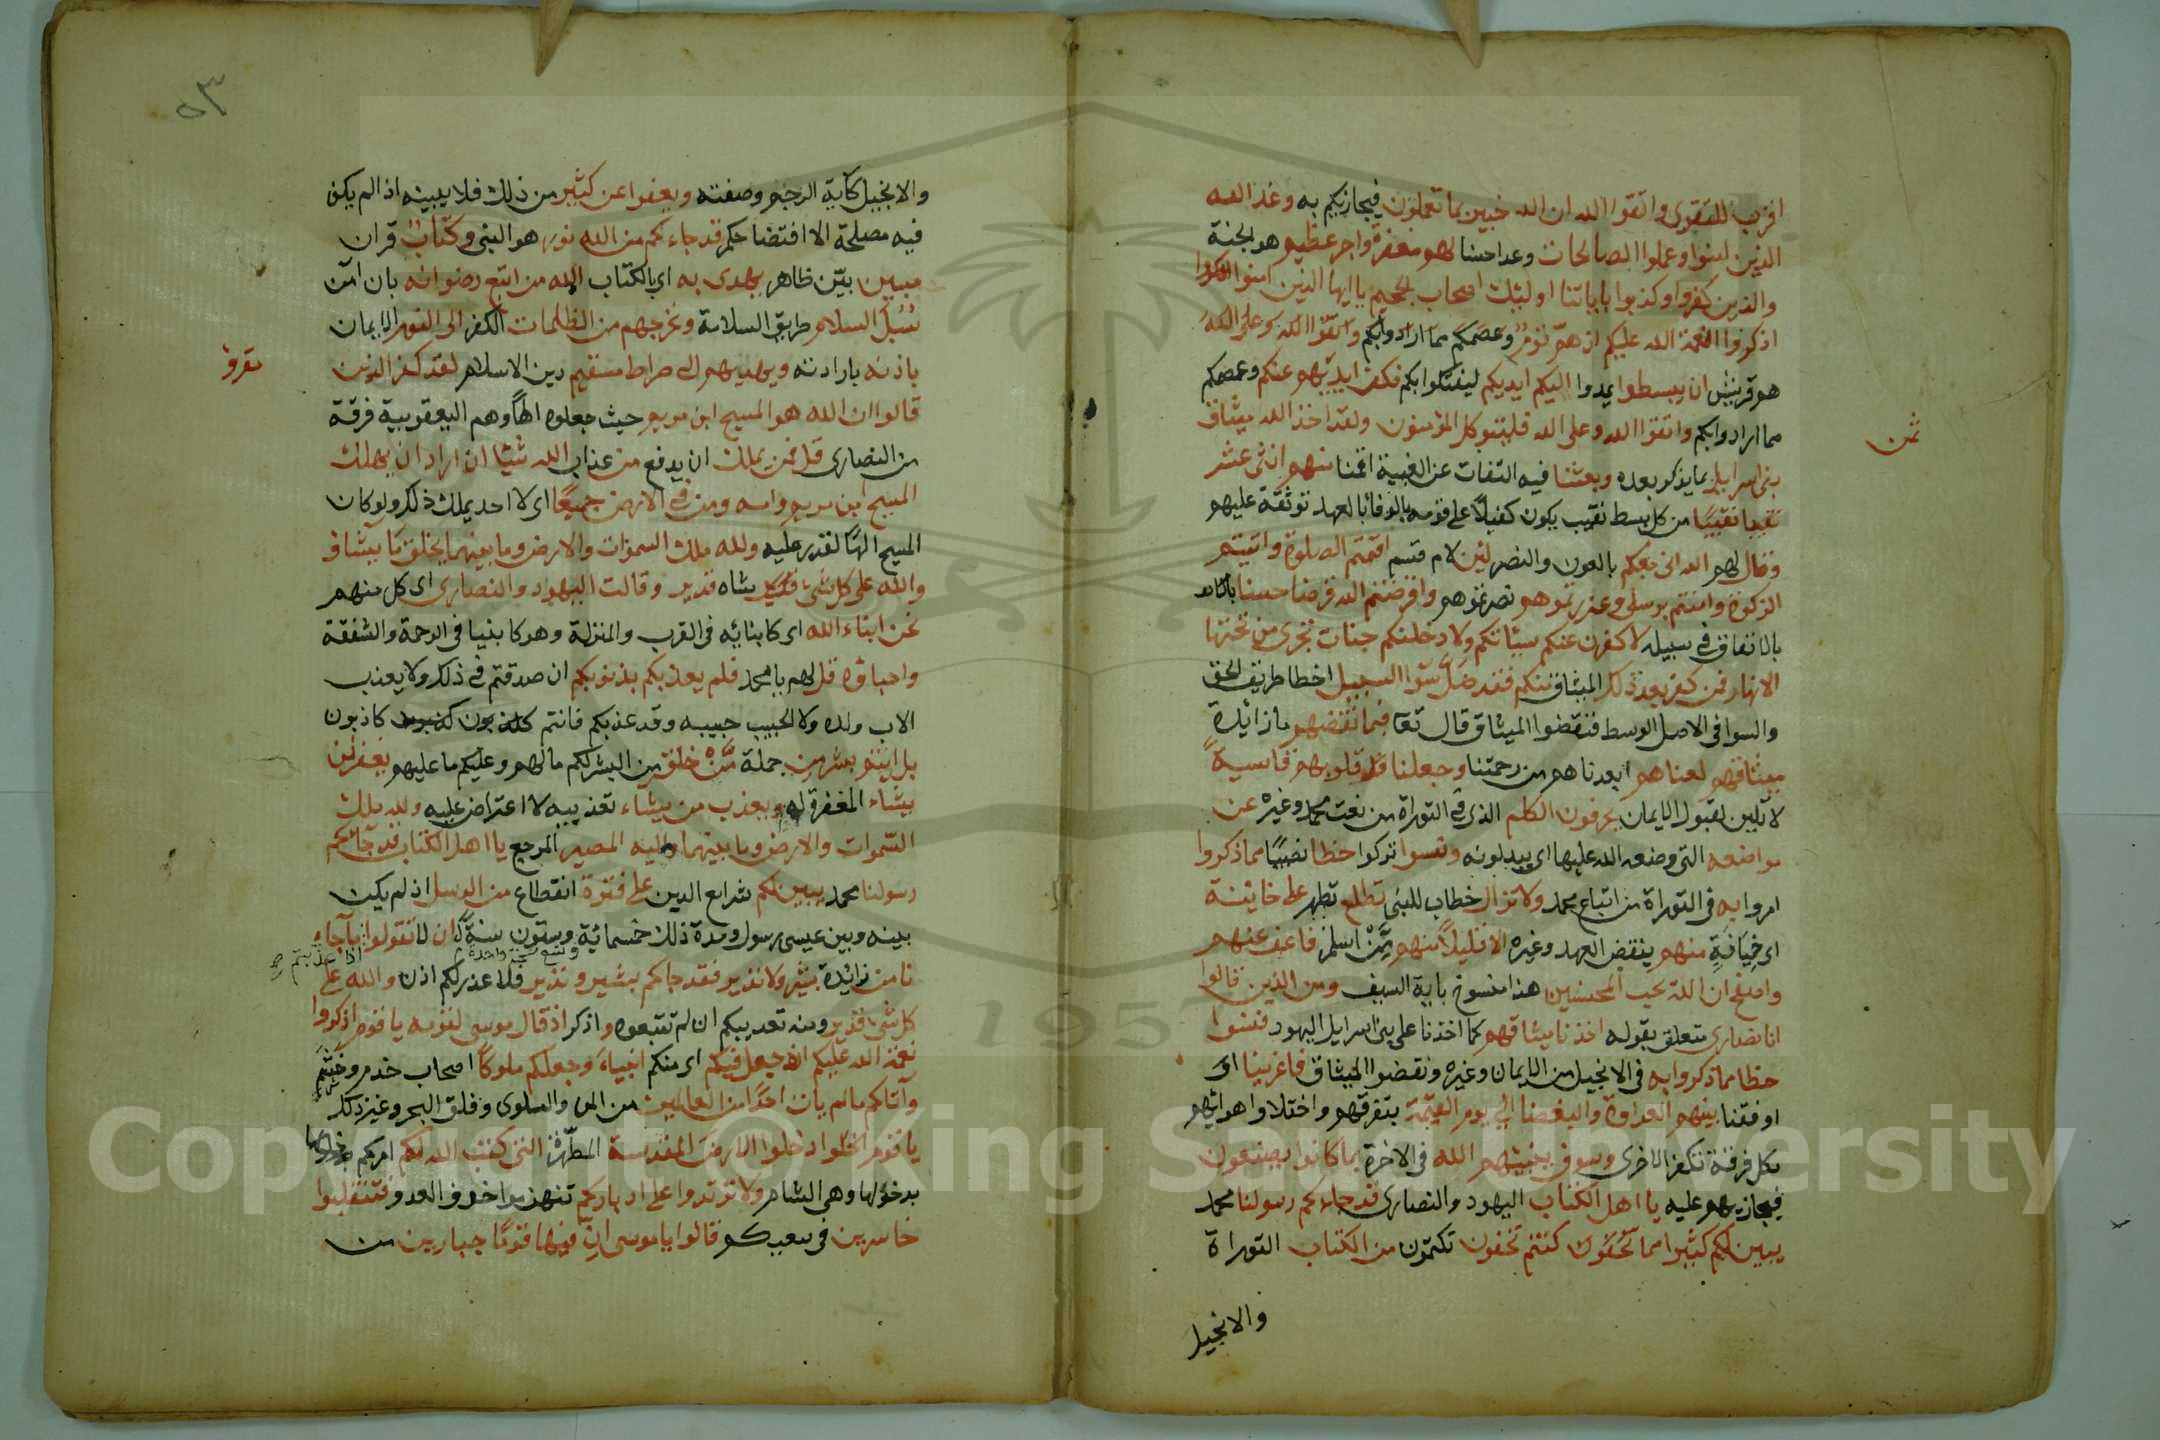 اقرب للتقوى واتقوا الله ان الله خبير بما تعملون فيجازيكم به وعد الله
الذين امنوا وعملوا الصالحات وعدا حسنا لهم مغفرة واجر عظيم هو الجنة
والذين كفروا وكذبوا باياتنا اولئك اصحاب الجحيم يا ايها الذين امنوا اذكروا
اذكروا نعمة الله عليكم اذ هم قوم وعصمكم مما ارادوا بكم واتقوا الله وعلى الله
هم قريش ان يبسطوا يمدوا اليكم ايديكم ليفتكوا بكم فكف ايديهم عنكم وعصمكم
مما ارادوا بكم واتقوا الله وعلى الله فليتوكل المؤمنون ولقد اخذ الله ميثاق
ثمن
بنى اسرايل بما يذكر بعده وبعثنا فيه التفات عن الغيبة اقمنا منهم اثنى عشر
نقيبا نقيبًا من كل سبط نقيب يكون كفيلاً على قومه بالوفا بالعهد توثقة عليهم
وقال لهم الله انى معكم بالعون والنصر لئن لام قسم اقمتم الصلوة واتيتم
الزكوة وامنتم برسلى وعزرتموهم نصرتموهم واقرضتم الله قرضا حسنا
بالانفاق فى سبيله لاكفرن عنكم سيئاتكم ولادخلنكم جنات تجرى من تحتها
الانهار فمن كفر بعد ذلك الميثاق منكم فقد ضل سوا السبيل اخطا طريق الحق
والسوا فى الاصل الوسط فنقضوا الميثاق قال تعا فبما نقضهم ما زائدة
ميثاقهم لعناهم ابعدناهم من رحمتنا وجعلنا قلوبهم قاسيةً
لا تلين لقبول الايمان يحرفون الكلم الذى فى التوراة من نعت محمد وغيره عن
مواضعه التى وضعه الله عليها اى يبدلونه ونسوا تركوا حظا نصيبًا مما ذكروا
امروا به فى التوراة من اتباع محمد ولا تزال خطاب للنبى تطلع تظهر على خائنة
اى خيانةٍ منهم بنقض العهد وغيره الا قليلاً منهم ممن اسلم فاعف عنهم
واصفح ان الله يحب المحسنين هذا منسوخ باية السيف ومن الذين قالوا
انا نصارى متعلق بقوله اخذنا ميثاقهم كما اخذنا على بنى اسرايل اليهود فنسوا
حظا مما ذكروا به فى الانجيل من الايمان وغيره ونقضوا الميثاق فاغرينا
اوقعنا بينهم العداوة والبغضا الى يوم القيمة بتفرقهم واختلاو اهوائهم
فكل فرقة تكفر الاخرى وسوف ينبئهم الله فى الاخرة بما كانوا يصنعون
فيجازيهم عليه يا اهل الكتاب اليهود والنصارى قد جاءكم رسولنا محمد
يبين لكم كثيرا مما تخفون كنتم تخفون تكتمون من الكتاب التوراة
والانجيل
٥٣
والانجيل كآية الرجم وصفته ويعفوا عن كثير من ذلك فلا يبينه اذا لم يكن
فيه مصلحة الا افتضاحكم قد جاءكم من الله نور هو النبى وكتابٌ قران
مبين بيّن ظاهر يهدى به اى بالكتاب الله من اتبع رضوانه بان امن
سُبُل السلام طريق السلامة ويخرجهم من الظلمات الكفر الى النور الايمان
باذنه بارادته ويهديهم الى صراط مستقيم دين الاسلام لقد كفر الذين
قالوا ان الله هو المسيح ابن مريم حيث جعلوه الهًا وهم اليعقوبية فرقة
من النصارى قل فمن يملك ان يدفع من عذاب الله شيئا ان اراد ان يهلك
المسيح ابن مريم وامه ومن فى الارض جميعًا اى لا احد يملك ذلك ولو كان
المسيح الهًا لقدر عليه ولله ملك السموات والارض وما بينهما يخلق ما يشاء
والله على كل شئ شاه قدير وقالت اليهود والنصارى اى كل منهم
نحن ابناء الله اى كابنائه فى القرب والمنزلة وهو كابينا فى الرحمة والشفقة
واحباؤه قل لهم يا محمد فلم يعذبكم بذنوبكم ان صدقتم فى ذلك ولا يعذب
الاب ولده ولا الحبيب حبيبه وقد عذبكم فانتم كاذبون
بل انتم بشر من جملة ممّن خلق من البشر لكم ما لهم وعليكم ما عليهم يغفر لمن
يشاء المغفرة له ويعذب من يشاء تعذيبه لا اعتراض عليه ولله ملك
السموات والارض وما بينهما واليه المصير المرجع يا اهل الكتاب قد جآئكم
رسولنا محمد يبين لكم شرايع الدين على فترة انقطاع من الرسل اذ لم يكن
بينه وبين عيسى رسول ومدة ذلك خمسمائية وستون سنة ان لا تقولوا ما جاء
وتسع
اذا عذبتم
نا من زائدة بشير ولا نذير فقد جاكم بشير ونذير فلا عذر لكم اذن والله على
كل شئ قدير ومنه تعذيبكم ان لم تتبعوه واذكر اذ قال موسى لقومه يا قوم اذكروا
نعمة الله عليكم اذ جعل فيكم اى منكم انبياء وجعلكم ملوكًا اصحاب خدم وحشم
وآتاكم ما لم يات احدًا من العالمين من المن والسلوى وفلق البحر وغير ذلك
يا قوم ادخلوا الارض المقدسة المطهّرة التى كتب الله لكم امركم
بدخولها وهى الشام ولا ترتدوا على ادباركم تنهزموا خوف العدو فتنقلبوا
خاسرين فى سعيكم قالوا يا موسى ان فيها قومًا جبارين من
Copyright © King Saud University
1957